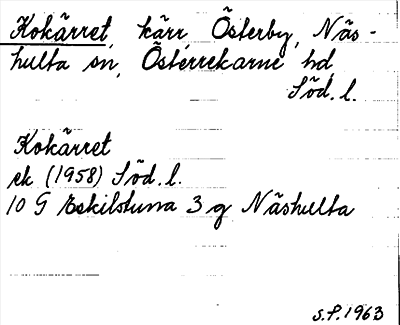 Kokärret, kärr, Österby, Näs-
hulta sn, Österrekarne hd,
Söd. l.
Kokärret
ek (1958) Söd. l.
10 G Eskilstuna 3 g Näshulta
S.P. 1963